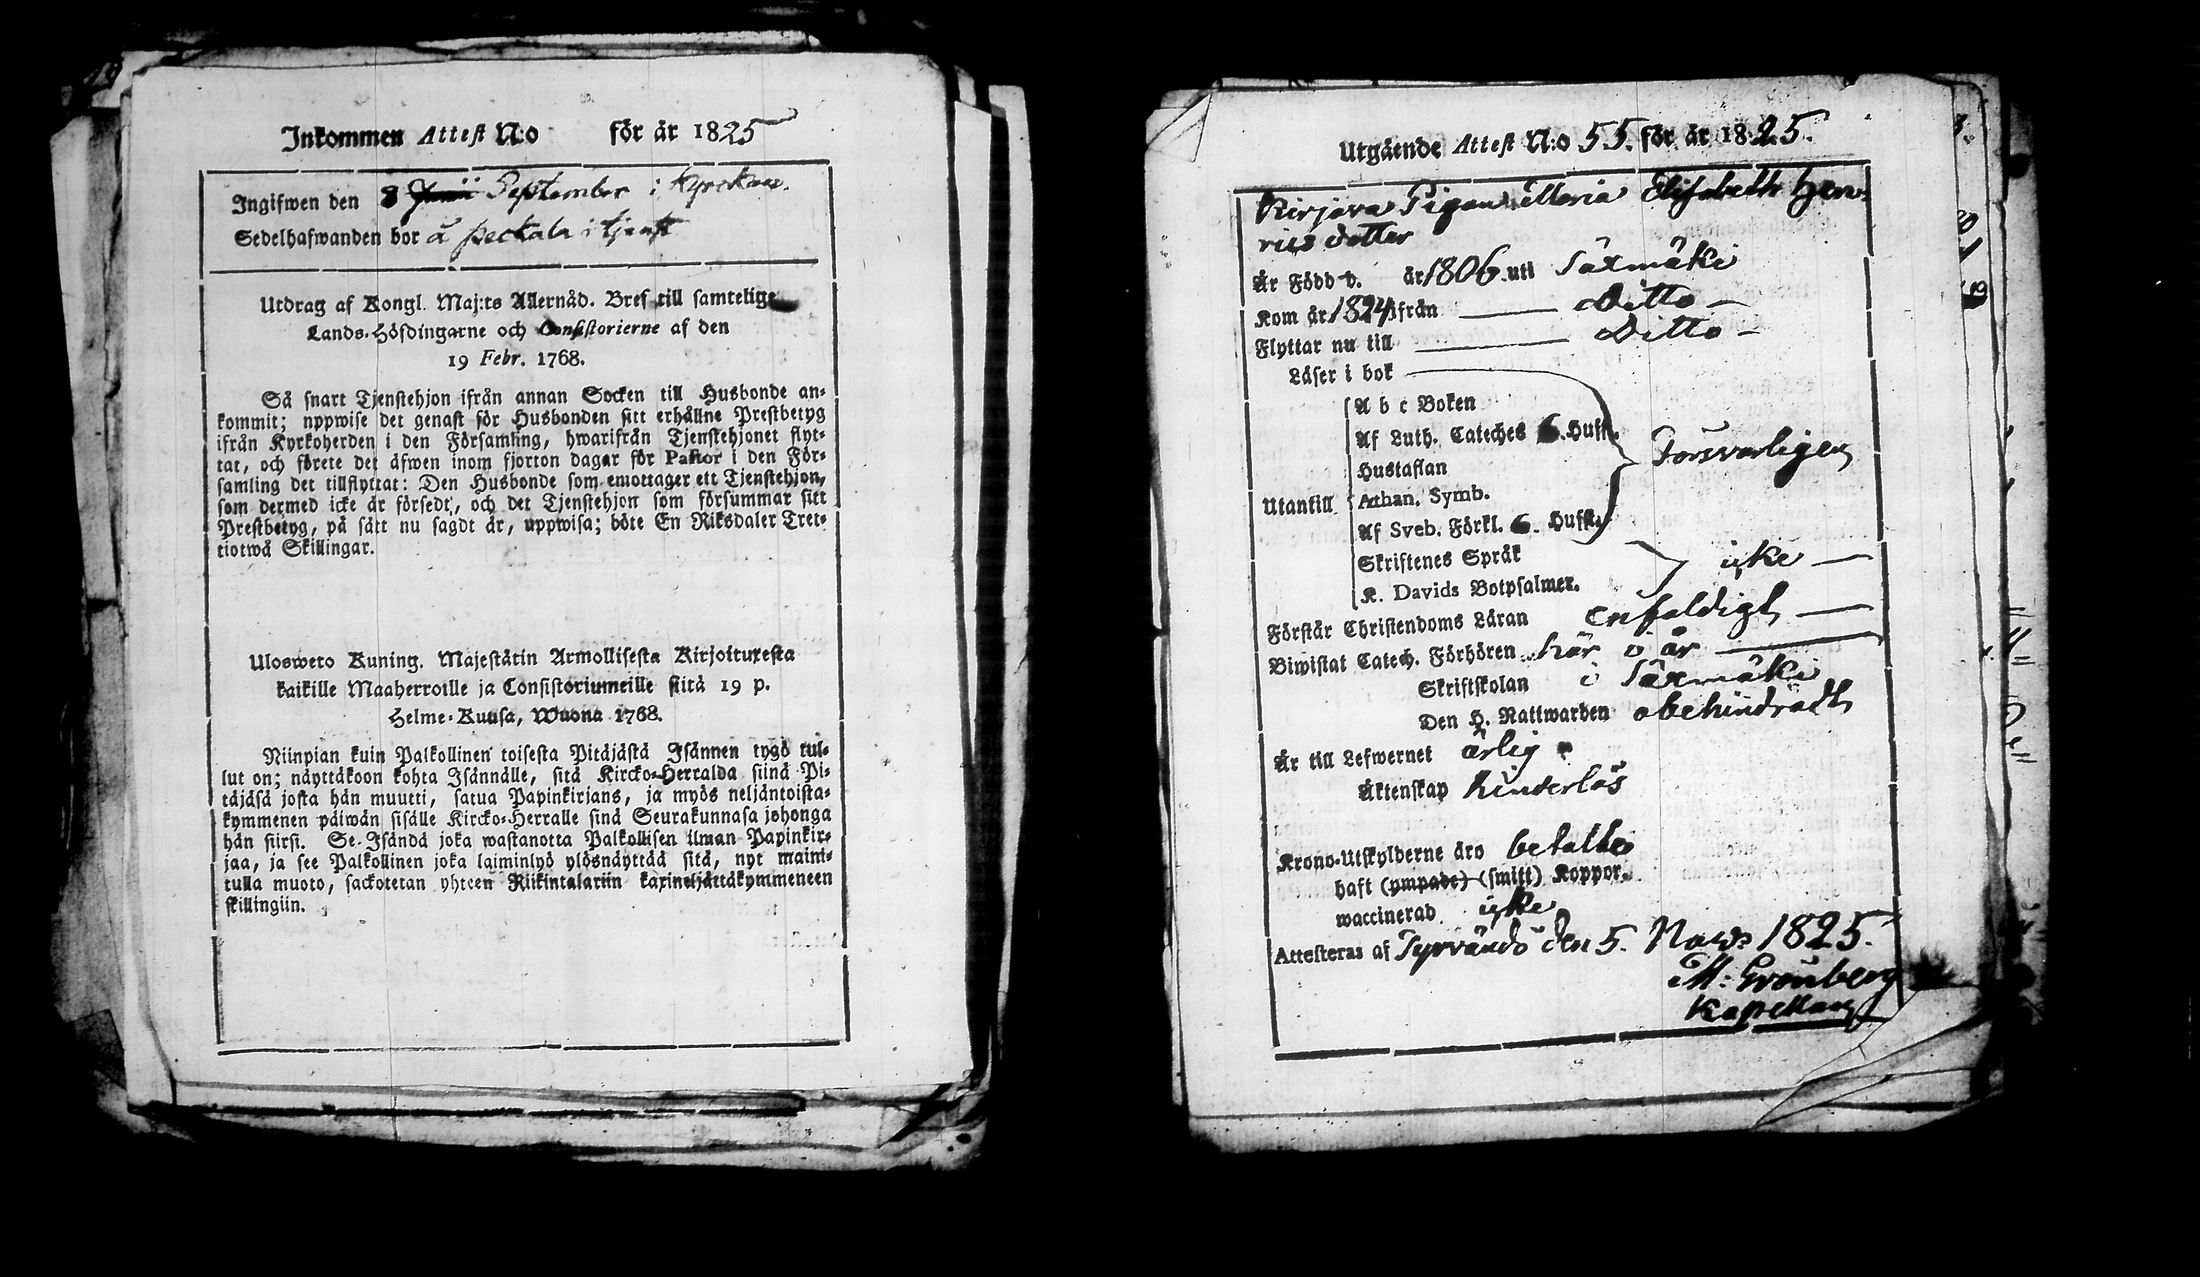 Inkommen Attest N:o för år 1825
Ingifwen den 8 Junii September i Kyrckan.
Sedelhafwanden bor å Peckala i tjenst
Utdrag af Kongl. Maj:ts Allernåd. Bref till samtelige
Lands-Höfdingarne och Consistorierne af den
19 Febr. 1768.
Så snart Tjenstehjon ifrån annan Socken till Husbonde an-
kommit; uppwise det genast för Husbonden sitt erhållne Prestbetyg
ifrån Kyrkoherden i den Församling, hwarifrån Tjenstehjonet flyt-
tat, och förete det äfwen inom fjorton dagar för Pastor i den För-
samling det tillflyttat: Den Husbonde som emottager ett Tjenstehjon,
som dermed icke är försedt, och det Tjenstehjon som försummar sitt
Prestbetyg, på sätt nu sagdt är, uppwisa; böte En Riksdaler Tret-
tiotwå Skillingar.
Ulosweto Kuning. Majestätin Armollisesta Kirjoituxesta
kaikille Maaherroille ja Consistoriumeille siitä 19 p.
Helme-Kuusa, Wuona 1768.
Niinpian kuin Palkollinen toisesta Pitäjästä Isännen tygö tul-
lut on; näyttäkoon kohta Isännälle, sitä Kircko-Herralda siinä Pi-
täjäsä josta hän muutti, saatua Papinkirjans, ja myös neljäntoista-
kymmenen päiwän sisälle Kircko-Herralle sinä Seurakunnasa johonga
hän siirsi. Se Isändä joka wastanotta Palkollisen ilman Papinkir-
jaa, ja see Palkollinen joka laiminlyö ylösnäyttää sitä, nyt maini-
tulla muoto, sackotetan yhteen Riikintalariin kaxineljättäkymmeneen
skillingiin.
Utgående Attest N:o 55. för år 1825.
Kirjava Pigan Maria Elisabeth Hen-
rics dotter
Är Född d. år 1806. uti Säxmäki
Kom år 1824 ifrån Ditto
Flyttar nu till Ditto
Läser i bok
A b c Boken
Af Luth. Cateches 6. Hufst.
Hustaflan
Utantill Athan. Symb. Försvarligen
Af Sveb. Förkl. 6. Hufst.
Skriftenes Språk icke
K. Davids Botpsalmer.
Förstår Christendoms Läran enfaldigt
Biwistat Catech. Förhören här i år
Skriftskolan i Säxmäki
Den H. Nattwarden obehindradt
Är till Lefwernet ärlig
Äktenskap hinderlös
Krono-Utskylderne äro betalte
haft (ympade) (smitt) Koppor.
waccinerad icke
Attesteras af Tyrvändö den 5. Nov: 1825.
M: Grönberg
Kapellan